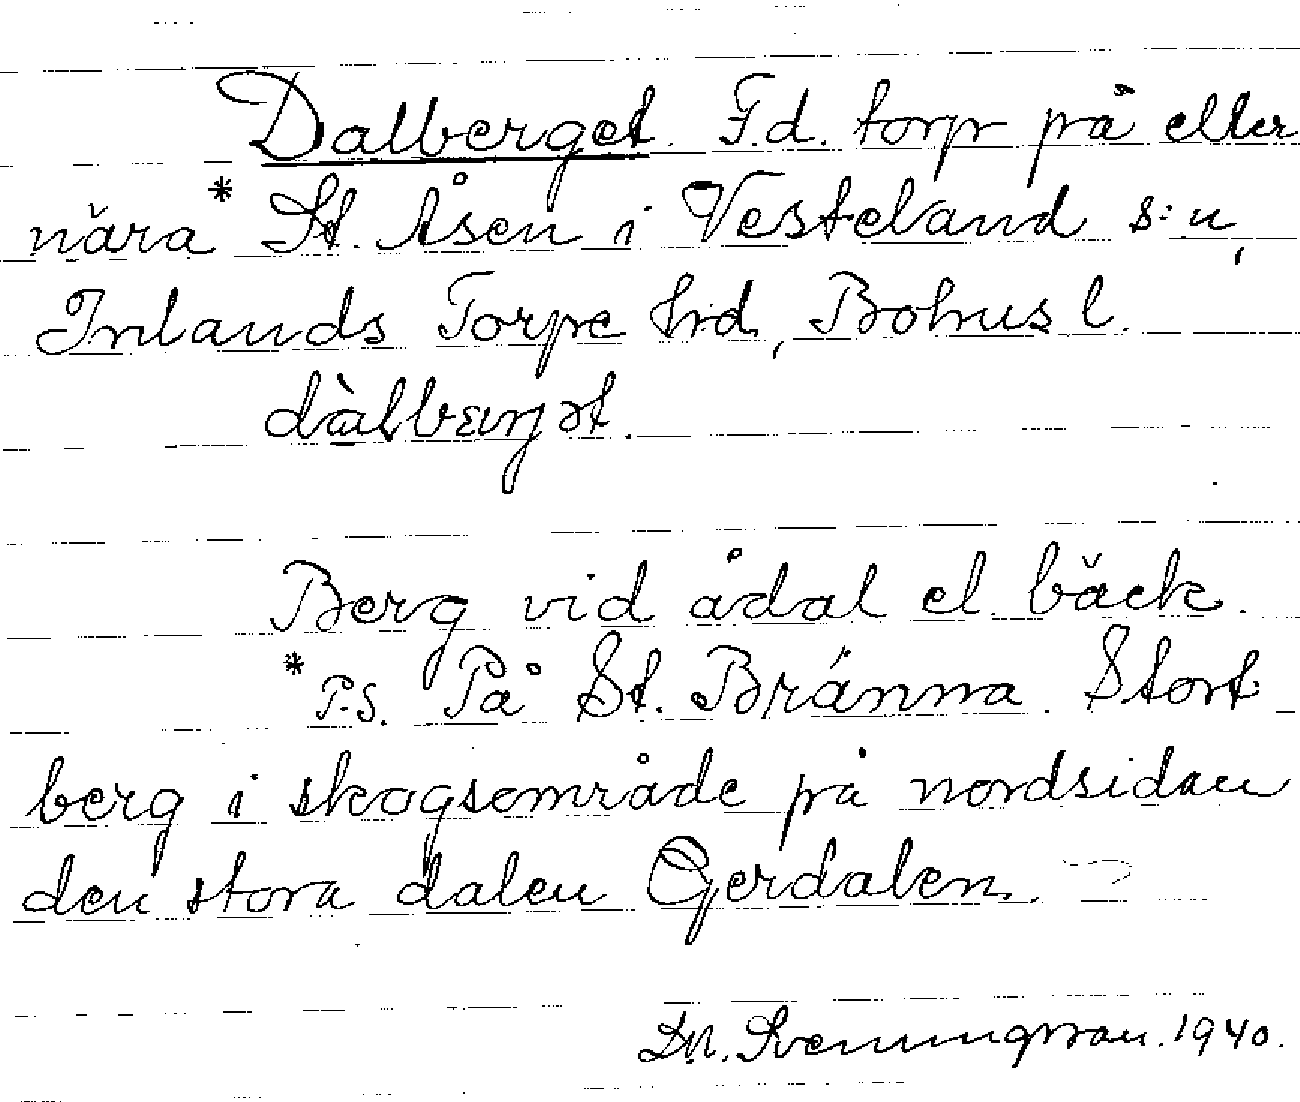 Dalberget. F.d. torp på eller
nära * St. Åsen i Vesteland s:n,
Inlands Torpe hrd, Bohusl.
dàlbærjət.
Berg vid ådal el. bäck.
* P.S. På St. Bränna. Stort
berg i skogsområde på nordsidan
den stora dalen Gerdalen.
Sveningsson. 1940.